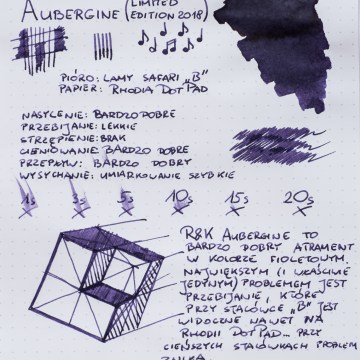 AUBERGINE (LIMITED EDITION 2018)
PIÓRO: LAMY SAFARI „B"
PAPIER: RHODIA DOTPAD
NASYCENIE: BARDZO DOBRE
PRZEBIJANIE: LEKKIE
STRZĘPIENIE: BRAK
CIENIOWANIE BARDZO DOBRE
PRZEPŁYW: BARDZO DOBRY
WYSYCHANIE: UMIARKOWANIE SZYBKIE
1s 3s 5s 10s 15s 20s
R&K AUBERGINE TO
BARDZO DOBRY ATRAMENT
W KOLORZE FIOLETOWYM.
NAJWIĘKSZYM (I WŁAŚCIWIE
JEDYNYM) PROBLEMEM JEST
PRZEBIJANIE, KTÓRE
PRZY STALÓWCE „B" JEST
WIDOCZNE NAWET NA
RHODII DOTPAD... PRZY
CIEŃSZYCH STALÓWKACH PROBLEM
ZNIKA.